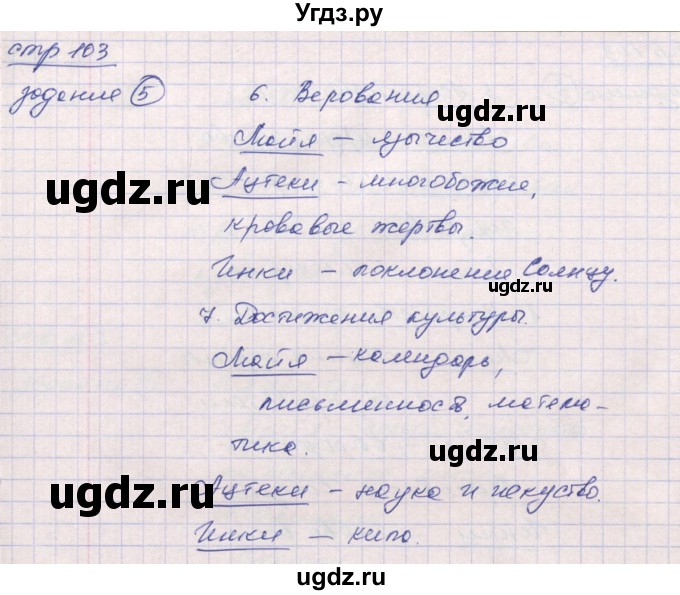 Угдз.ру
стр 103
задание 5
6. Верования
Майя – язычество
Ацтеки – многобожие,
кровавые жертвы.
Инки – поклонение Солнцу.
7. Достижения культуры.
Майя – календарь,
письменность, матема-
тика.
Ацтеки – наука и искуство.
Инки – кипо.
ugdz.ru
ugdz.ru
ugdz.ru
ugdz.ru
ugdz.ru
ugdz.ru
ugdz.ru